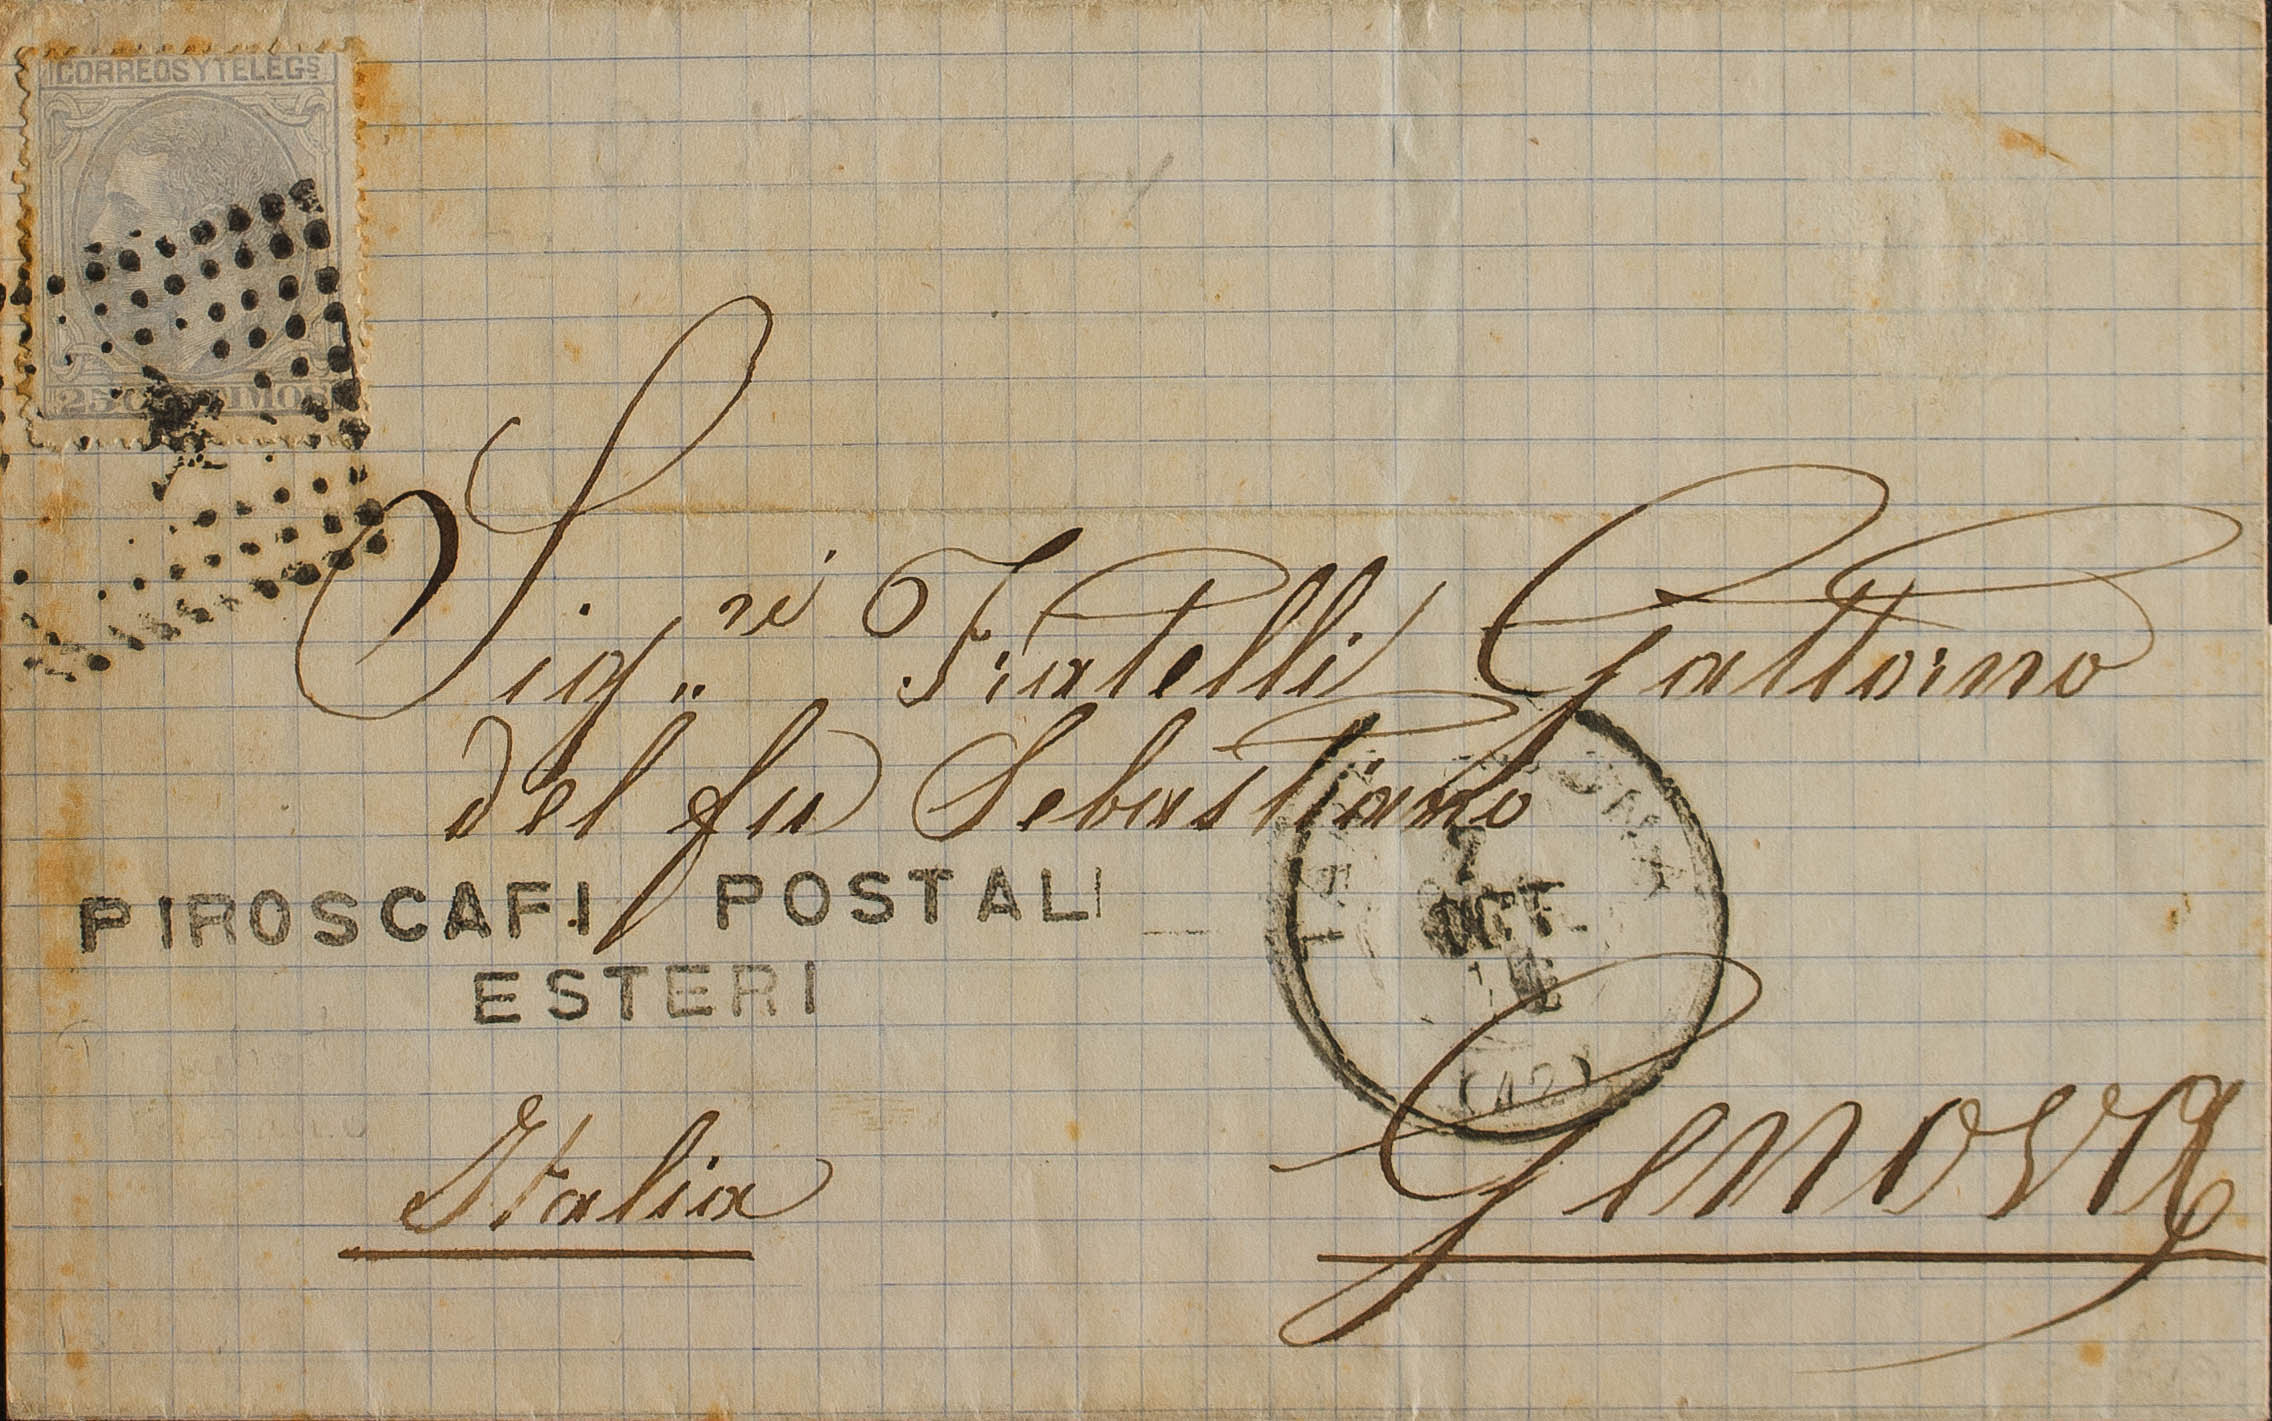 CORREOS Y TELEGS
25 CENTIMOS
Sig.ri Fratelli Gattorno
del fu Sebastiano
PIROSCAFI POSTALI
ESTERI
OCT
(42)
Italia
Genova